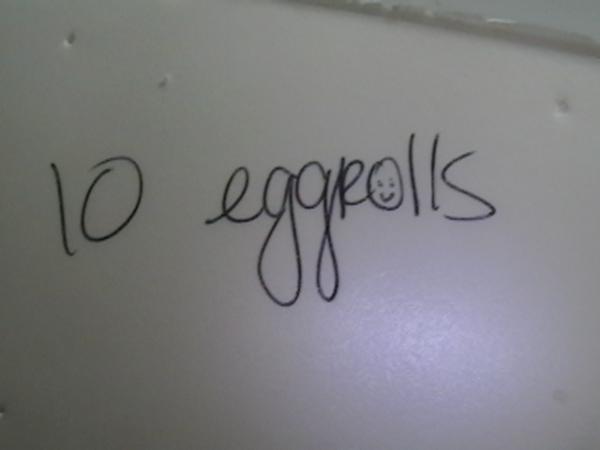 10 eggrolls